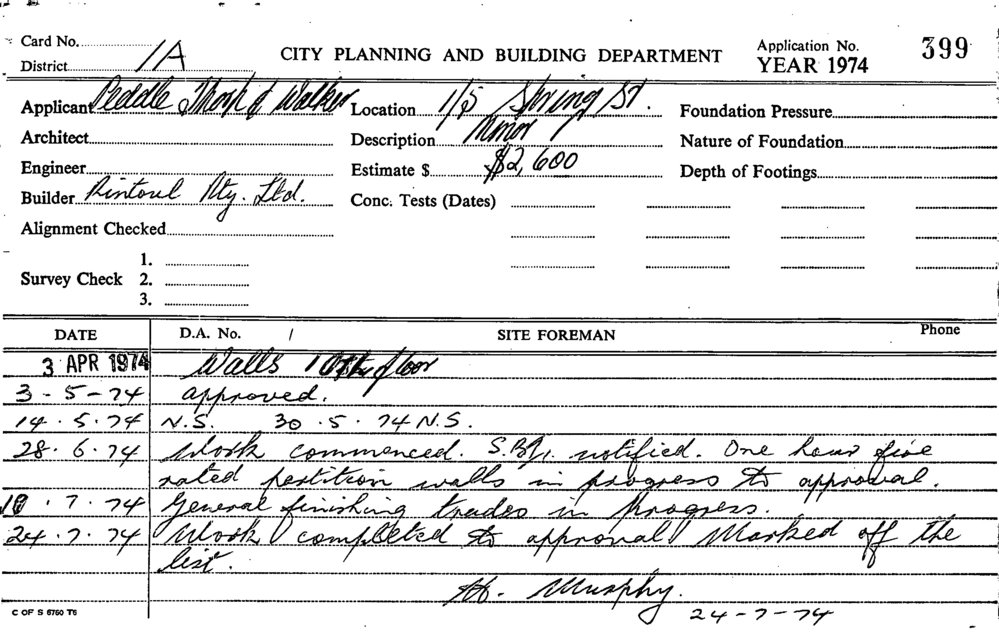 Card No.
District 1A
CITY PLANNING AND BUILDING DEPARTMENT
Application No. 399
YEAR 1974
Applicant Peddle Thorp & Walker
Location 1/5 Spring St.
Foundation Pressure
Architect
Description Minor
Nature of Foundation
Engineer
Estimate $ $2,600
Depth of Footings
Builder Rintoul Pty. Ltd.
Conc. Tests (Dates)
Alignment Checked
Survey Check 1.
2.
3.
DATE D.A. No. / SITE FOREMAN Phone
3 APR 1974 Walls 10th floor
3-5-74 approved.
14.5.74 N.S. 30.5.74 N.S.
28.6.74 Work commenced. S.B.I. notified. One hour fire
rated partition walls in progress to approval.
.7.74 General finishing trades in progress.
24.7.74 Work completed to approval Marked off the
list.
Murphy.
24-7-74
C OF S 6760 T6